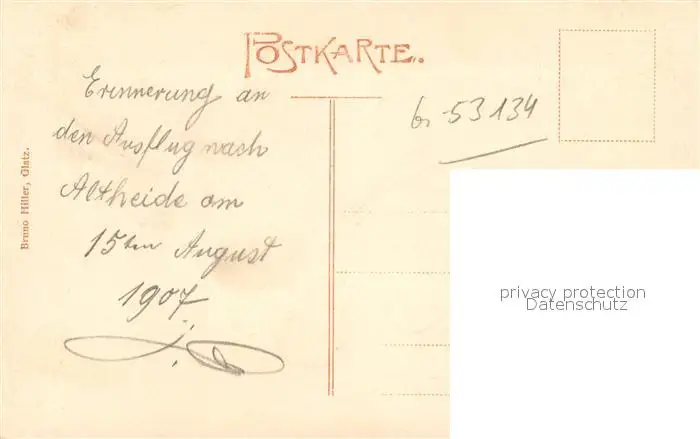 POSTKARTE..
Erinnerung an
den Ausflug nach
Altheide am
15ten August
1907
bi 53134
Bruno Hiller, Glatz.
privacy protection
Datenschutz